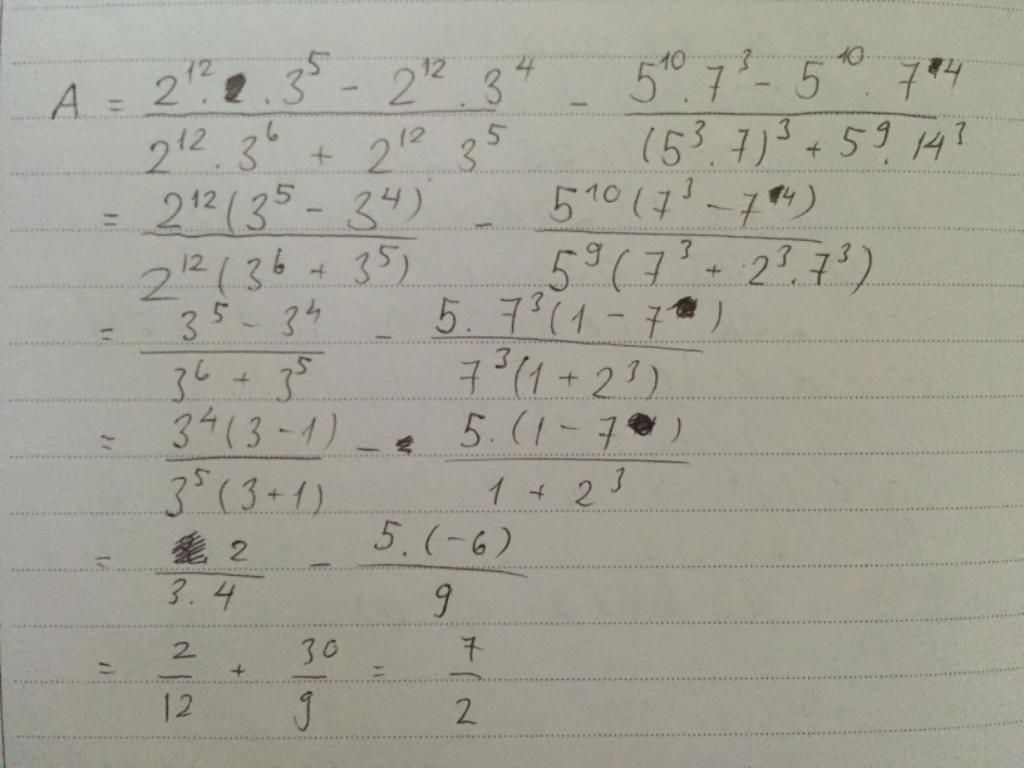 A = (2¹² . 3⁵ - 2¹² . 3⁴)/(2¹² . 3⁶ + 2¹² . 3⁵) - (5¹⁰ . 7³ - 5¹⁰ . 7⁴)/((5³ . 7)³ + 5⁹ . 14³)
= (2¹²(3⁵ - 3⁴))/(2¹²(3⁶ + 3⁵)) - (5¹⁰(7³ - 7⁴))/(5⁹(7³ + 2³ . 7³))
= (3⁵ - 3⁴)/(3⁶ + 3⁵) - (5 . 7³(1 - 7))/(7³(1 + 2³))
= (3⁴(3 - 1))/(3⁵(3 + 1)) - (5 . (1 - 7))/(1 + 2³)
= 2/(3 . 4) - (5 . (-6))/9
= 2/12 + 30/9 = 7/2